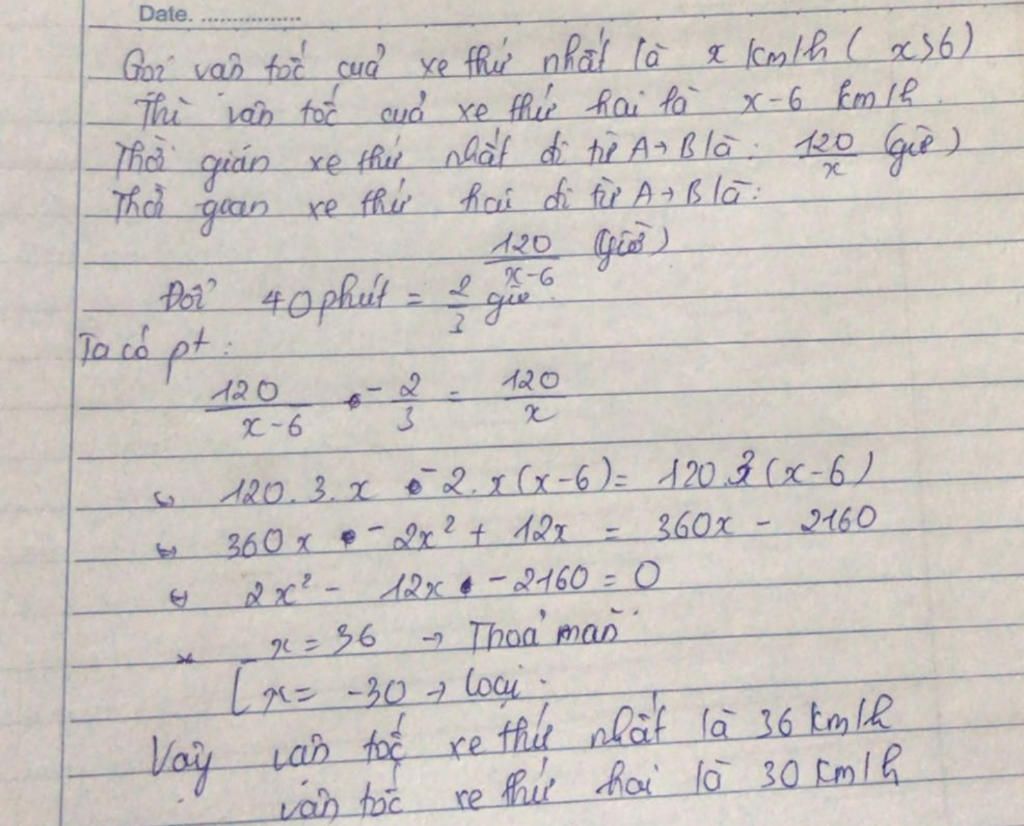 Date. ................
Gọi vận tốc của xe thứ nhất là x km/h ( x>6)
Thì vận tốc của xe thứ hai là x-6 km/h
Thời gian xe thứ nhất đi từ A→B là: 120/x (giờ)
Thời gian xe thứ hai đi từ A→B là:
120/(x-6) (giờ)
Đổi 40 phút = 2/3 giờ.
Ta có pt:
120/(x-6) - 2/3 = 120/x
⇔ 120. 3. x - 2. x(x-6) = 120.3(x-6)
⇔ 360x - 2x² + 12x = 360x - 2160
⇔ 2x² - 12x - 2160 = 0
[ x = 36 → Thoả mãn
x = -30 → loại.
Vậy vận tốc xe thứ nhất là 36 km/h
vận tốc xe thứ hai là 30 km/h